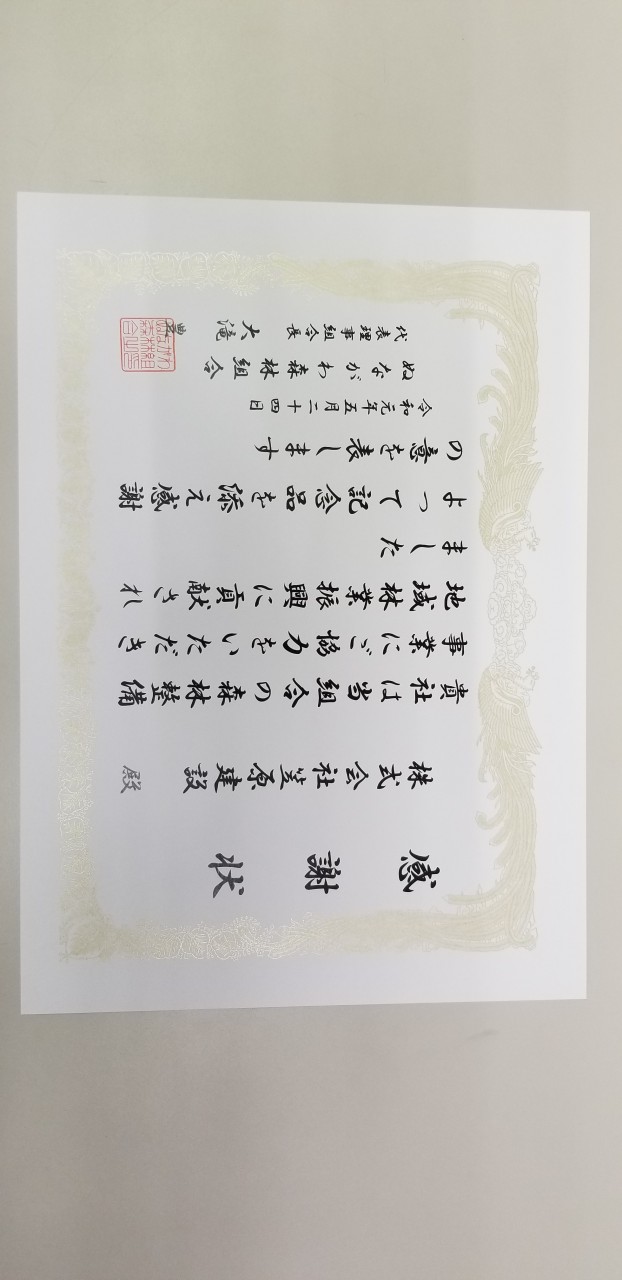 感謝状
株式会社笠原建設 殿
貴社は当組合の森林整備
事業にご協力をいただき
地域林業振興に貢献され
ました
よって記念品を添え感謝
の意を表します
令和元年五月二十四日
ぬながわ森林組合
代表理事組合長 大滝 豊